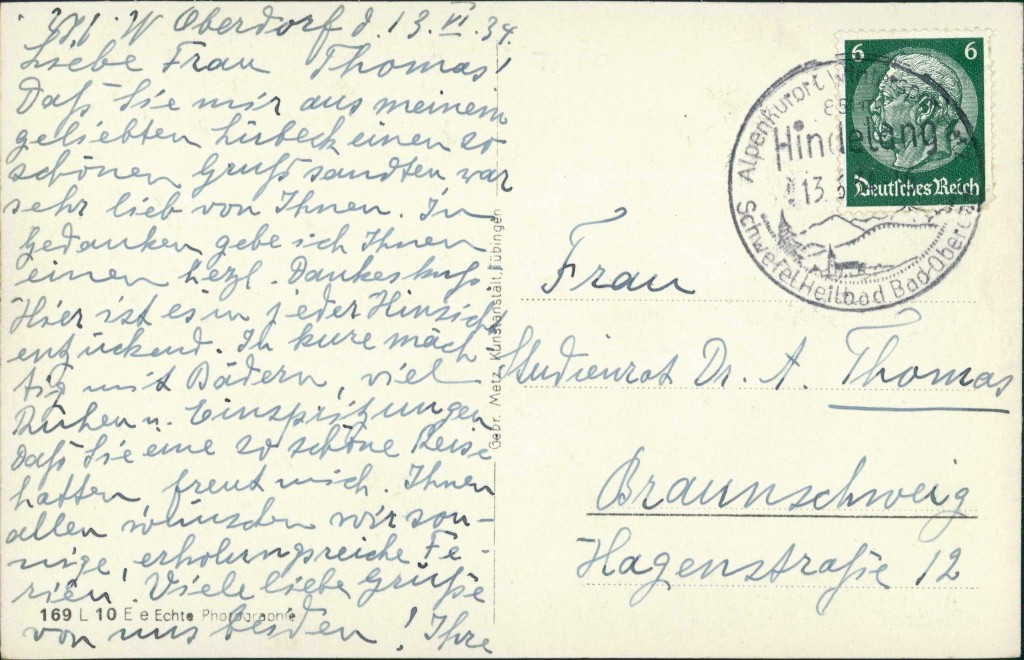 Oberdorf d. 13. VI. 34.
Liebe Frau Thomas!
Daß Sie mir aus meinem
geliebten Lübeck einen so
schönen Gruß sandten war
sehr lieb von Ihnen. In
Gedanken gebe ich Ihnen
einen herzl. Dankeskuß
Hier ist es in jeder Hinsicht
entzückend. Ich kure mäch
tig mit Bädern, viel
Ruhen u. Einspritzungen
Daß Sie eine so schöne Reise
hatten freut mich. Ihnen
allen wünschen wir son-
nige, erholungsreiche Fe-
rien. Viele liebe Grüße
von uns beiden! Ihre
169 L 10 E e Echte Photographie
Gebr. Metz, Kunstanstalt, Tübingen
6 6
Deutsches Reich
Alpenkurort
Hindelang
13. 6
Schwefel Heilbad Bad-Oberd
Frau
Studienrat Dr. A. Thomas
Braunschweig
Hagenstraße 12